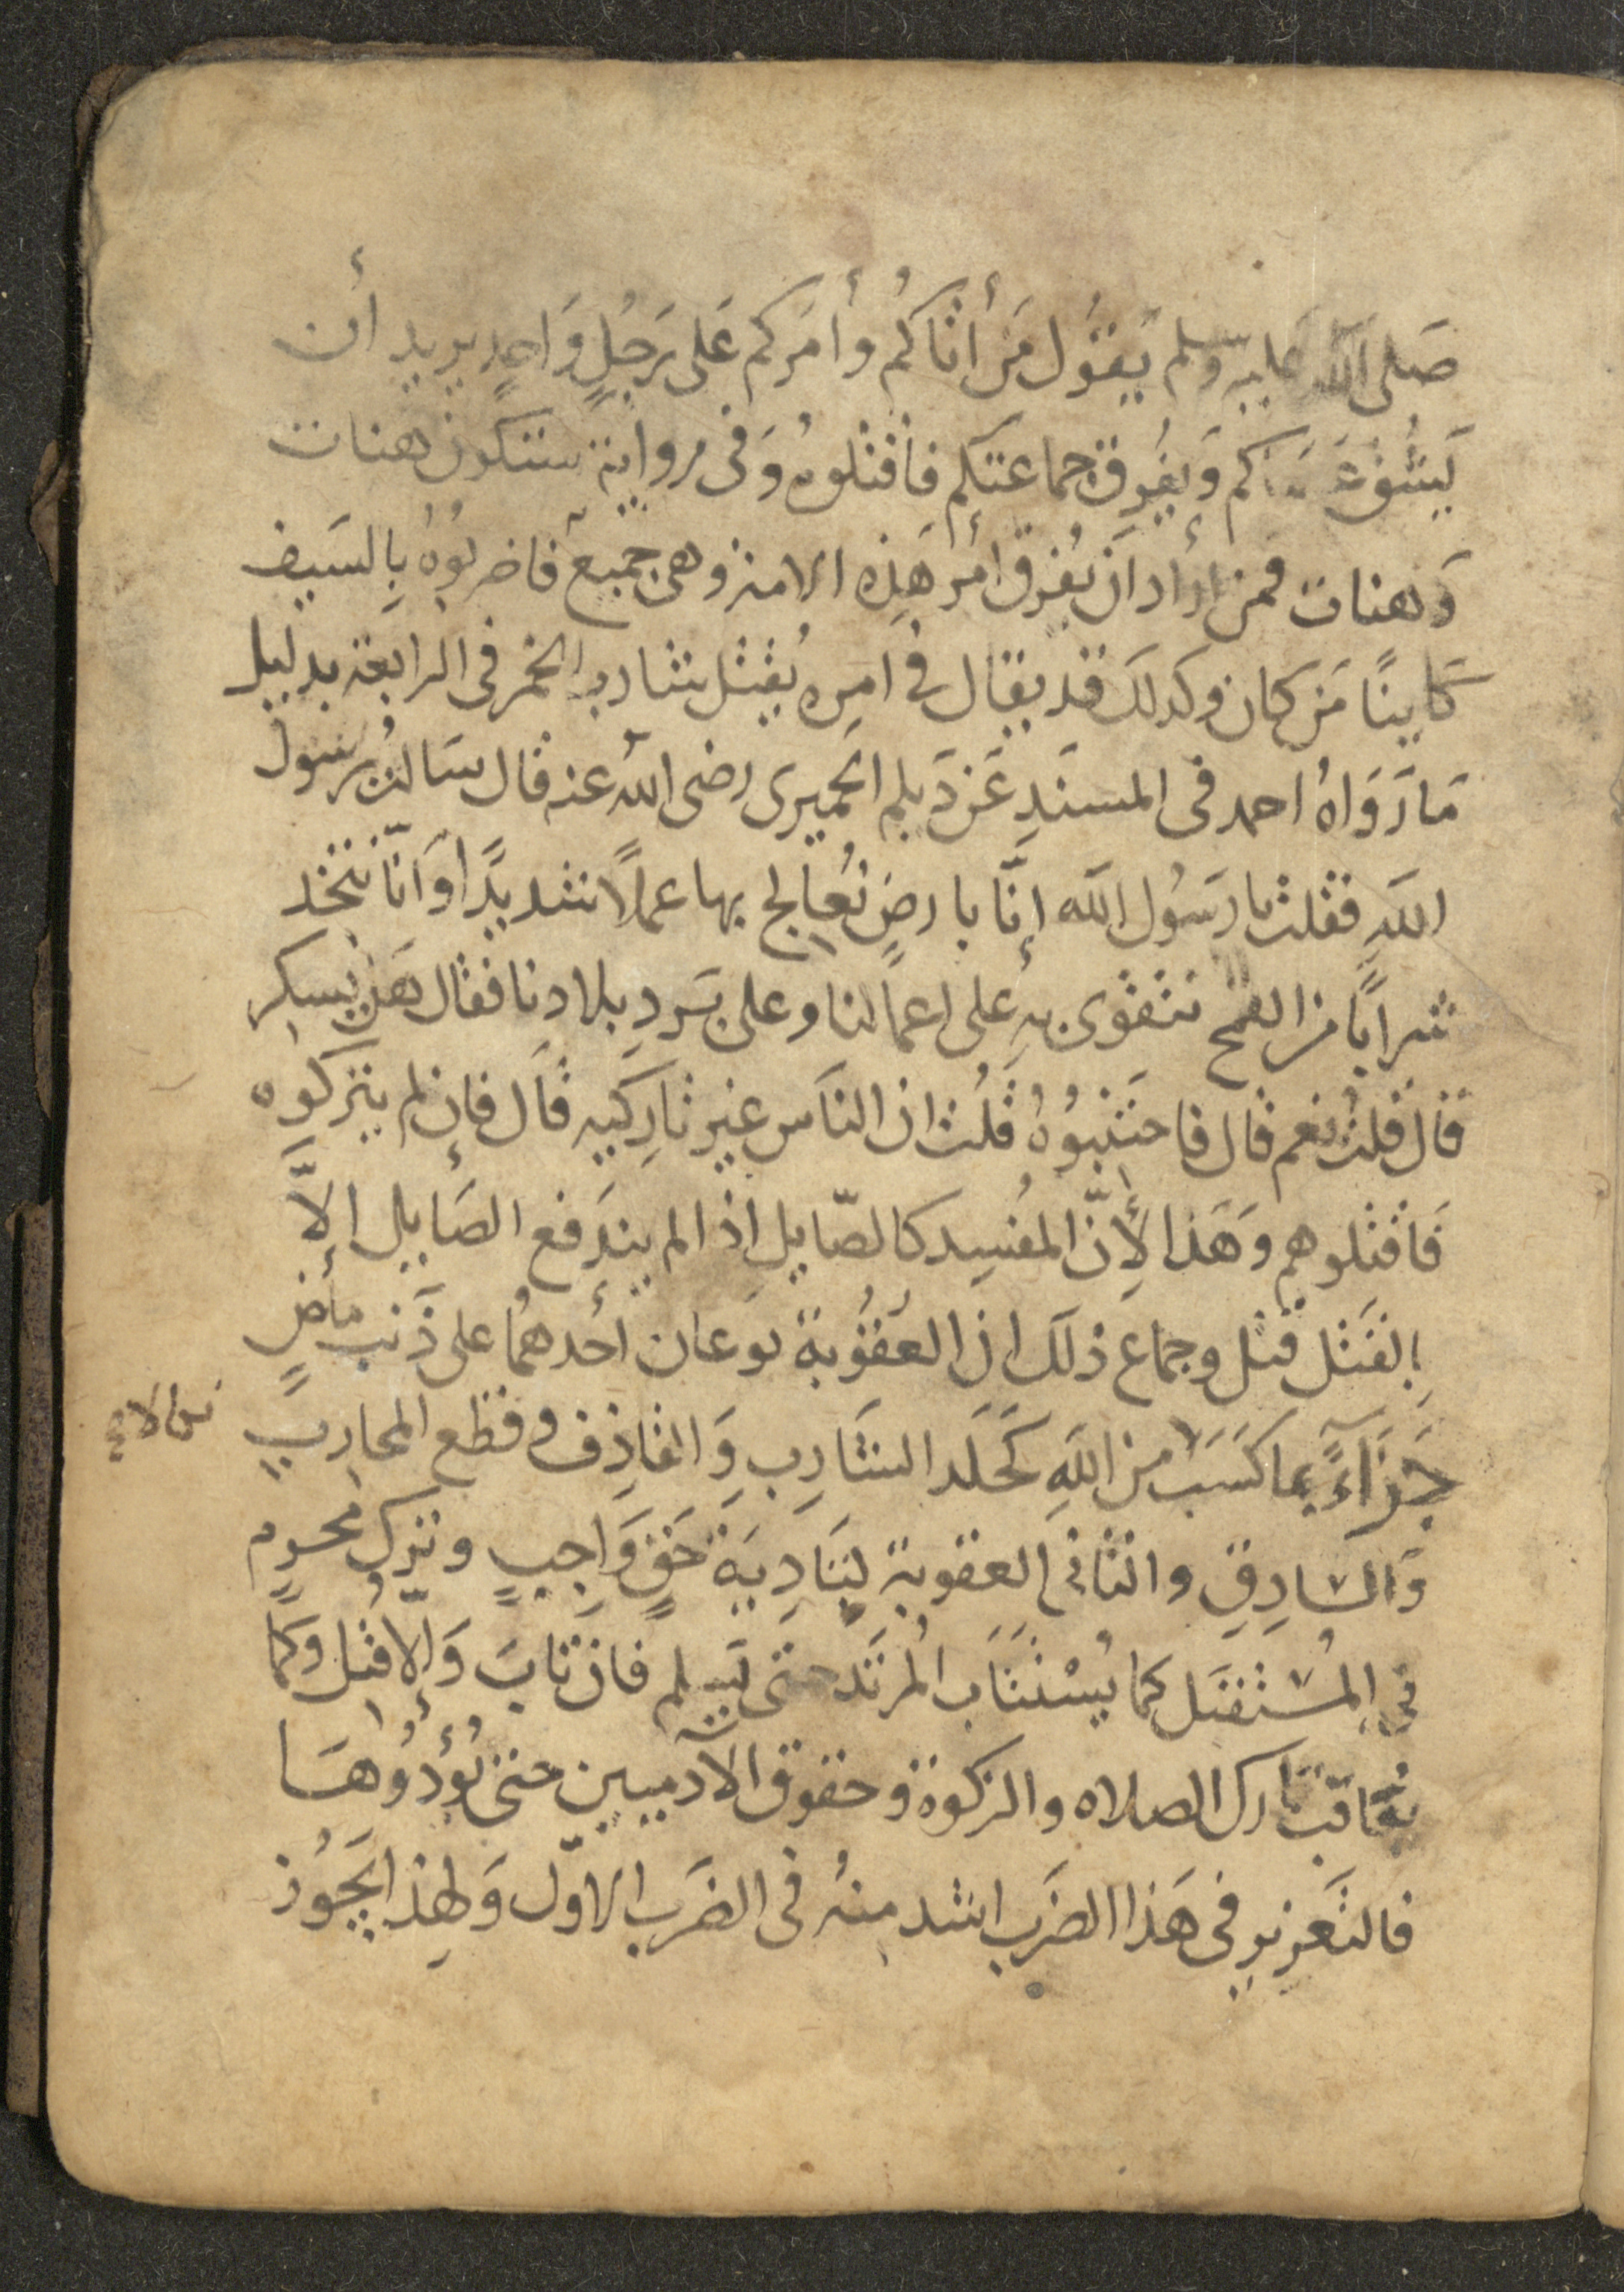 صَلى الله عليه وسلم يَقُول مَن أتَاكمُ وأمْركم عَلى رَجُلٍ وَاحِدٍ يريد أن
يَشُق عَصَاكم وَيفُرِق جماعَتكم فاقتلوه وَفى رواية ستكون هنات
وَهنات فمن اراد ان يُفرق امْر هَذِه الامة وهى جميع فاضربُوهُ بِالسَيف
كَاينًا مَن كان وكدلكَ قد يقال فى امره بُقتل شارب الخمر فى الرابعة بدليل
مَا رَوَاهُ احمد فى المسنَدِ عَن دَيلم الحميرى رضى الله عنه قال سَالت رسول
اللهِ فقلت يا رَسُول الله إنَّا بارضٍ نُعالج بها عملًا شديدًا وَانّا نتخذ
شرابًا من القمح نتقوى بهِ عَلى اعمالنا وعلى برد بلادنا فقال هَل يُسكر
قال قلت نعم قال فاجتنبوُهُ قلُت ان الناسَ غير تاركيه قال فإن لم يتركوه
فَاقتلوهم وَهَذا لأِنّ المفُسِد كالصّايل اذا لم يندَفع الصَايل إلاَّ
بِالقَتل قتل وجماع ذلكَ ان العقُوُبة نوعان أحدهمُا على ذَنب ماضٍ
جَزَآءً بما كسَبَ من اللهِ كجَلدَ الشَارِبِ وَالقاذِف وقطع المحاربِ
وَالسارقِ والثانى العقوبة لِتَادِيَة حَقٍ وَاجِبٍ وتركِ محرم
في المُسْتقبَل كما يُسْتتَاب المُرتَد حتى يُسلم فان تابَ وَإلّا قُتِل وَكما
يُعَاقب تارك الصلاه والزكوة وحقوق الآدميين حتى يُؤدُوُهَا
فالتَعزير فى هَذا الضَرب اشد منهُ فى الضَرب الاوّل وَلهِذا يَجُوز